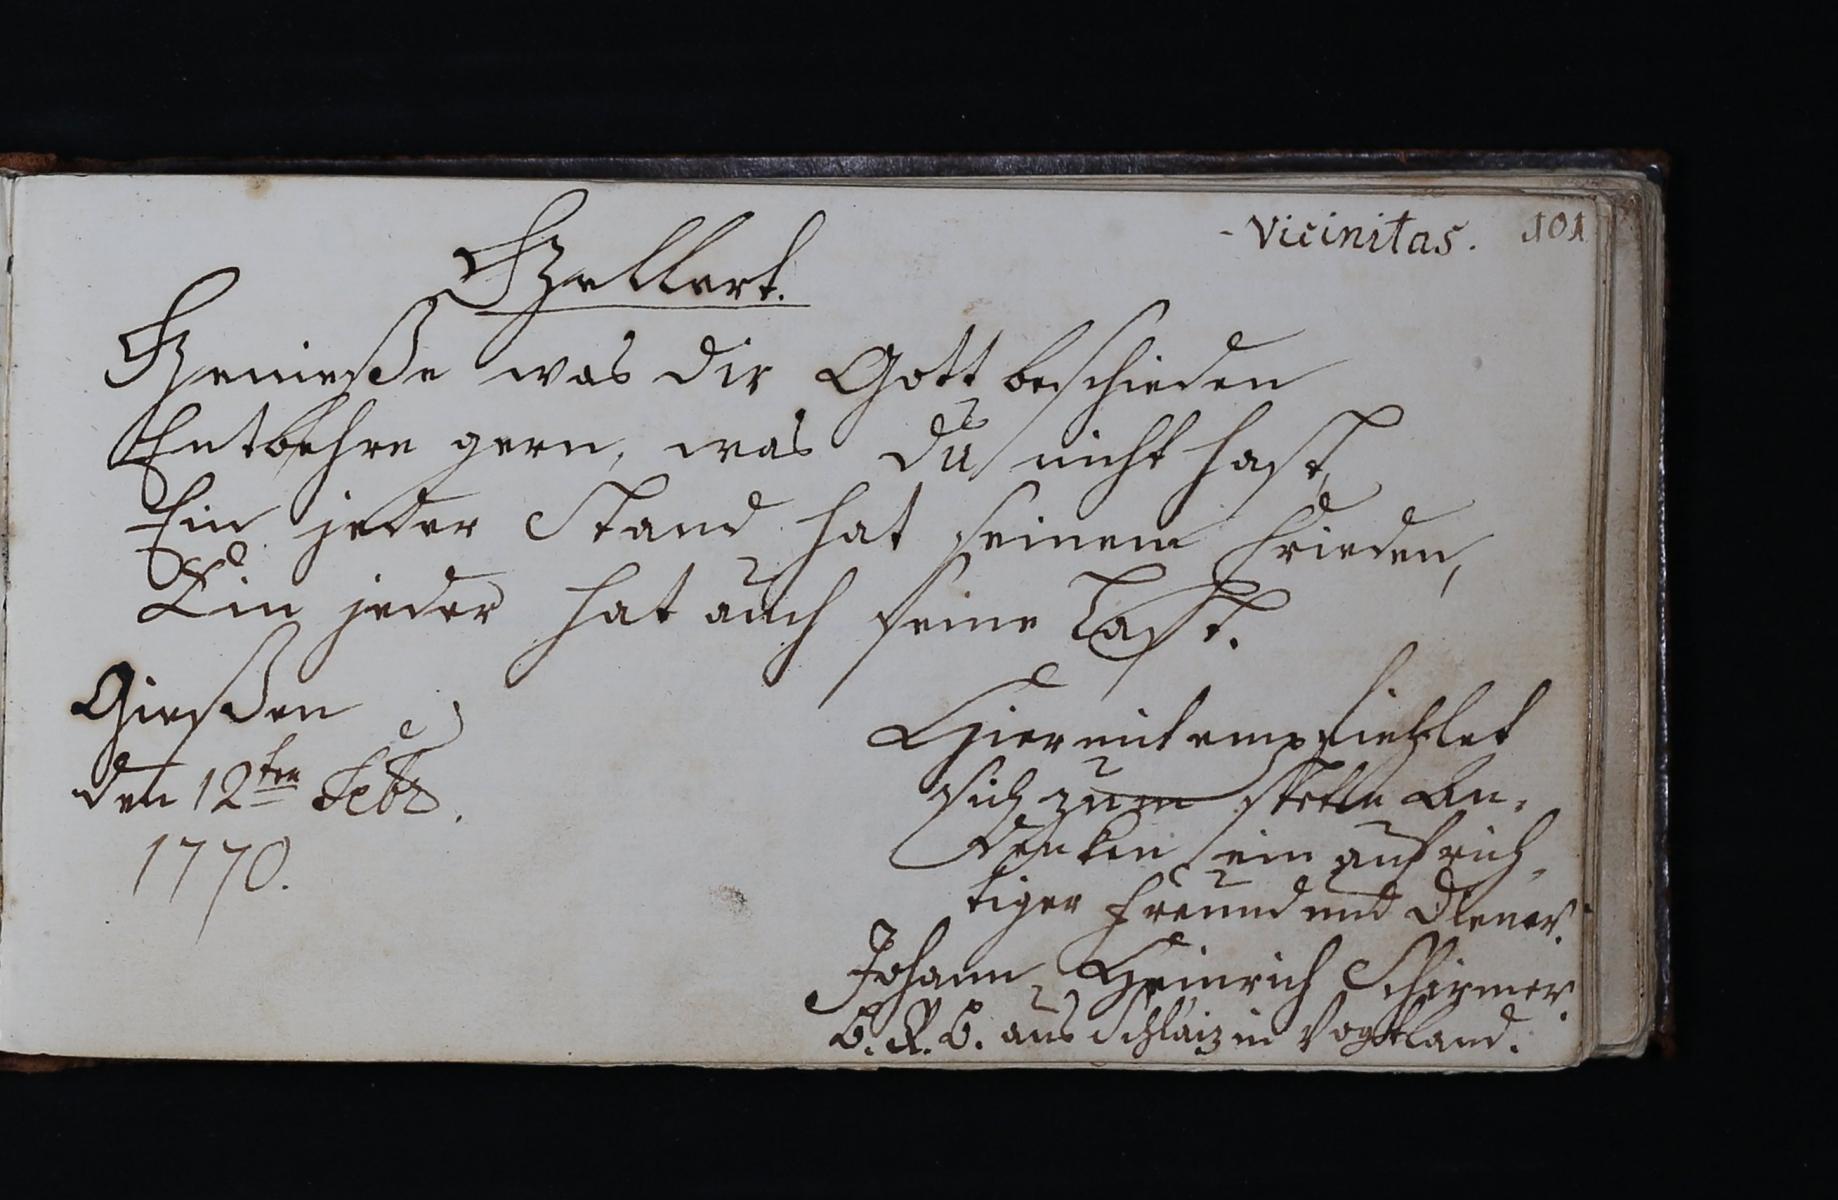 - Vicinitas. 101
Gellert.
Genieße was dir Gott beschieden
Entbehre gern, was du nicht hast,
Ein jeder Stand hat seinem Frieden,
Ein jeder hat auch seine Last.
Gießen
den 12ten Febr.
1770.
Hiermit empfiehlet
sich zum stetten An-
denken ein aufrich-
tiger Freund und Diener.
Johann Heinrich Schirmer
aus Schlaiz in Vogtland.